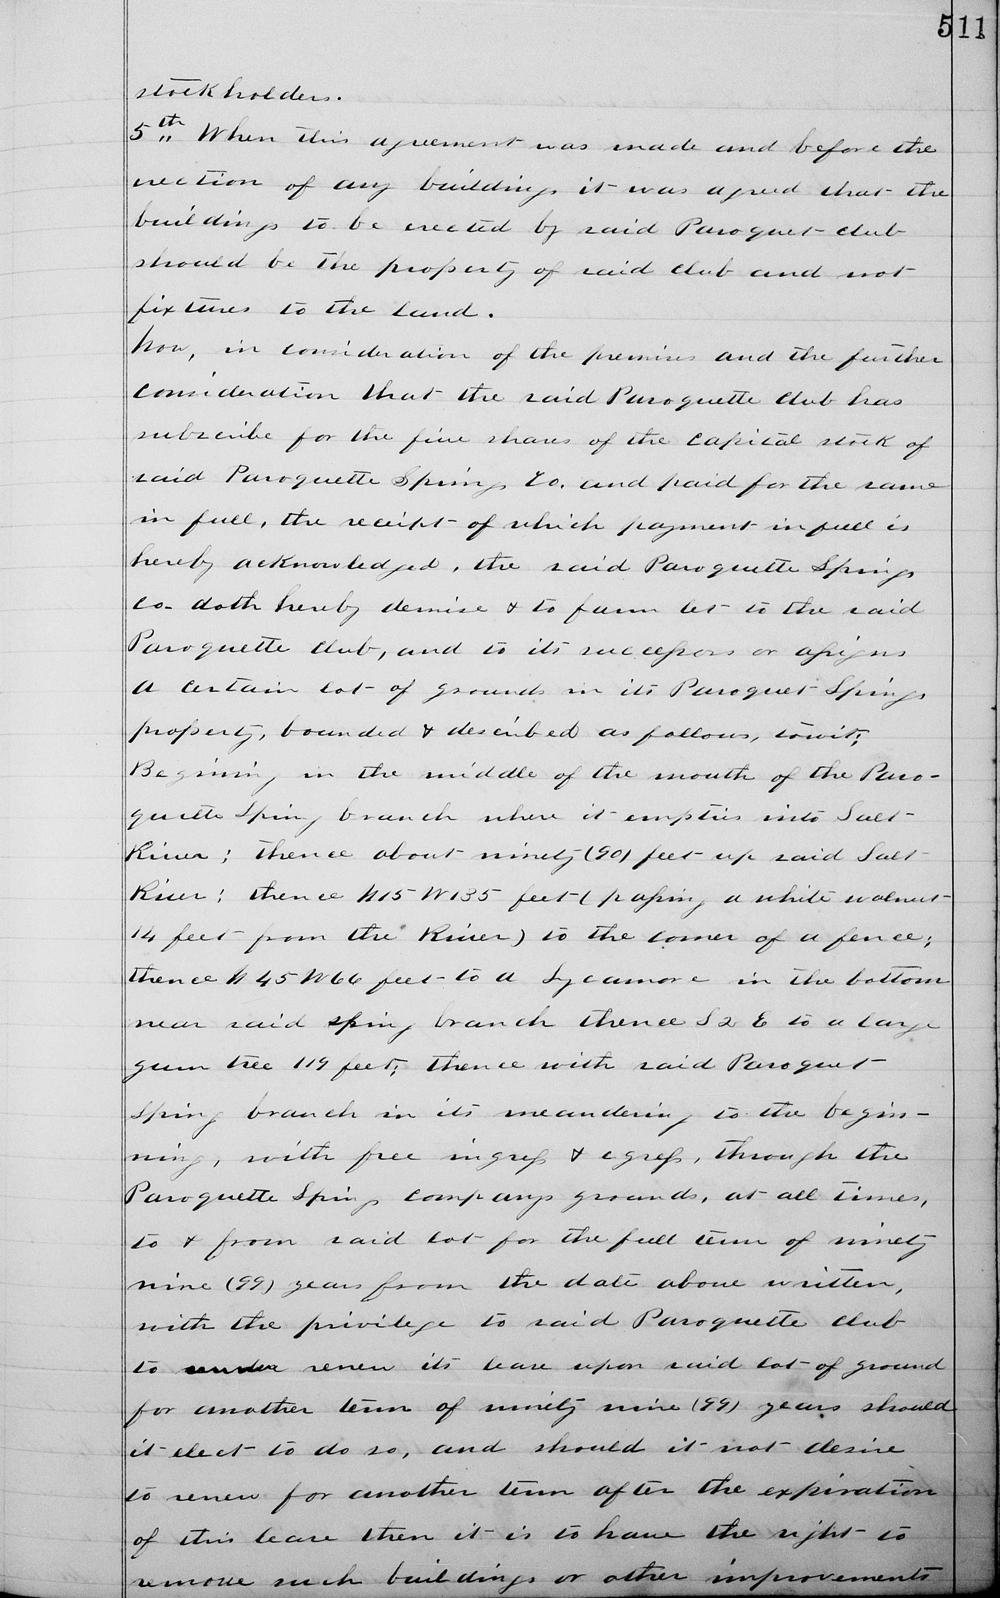 511
stockholders.
5th When this agreement was made and before the
erection of any buildings it was agreed that the
buildings to be erected by said Paroquet club
should be the property of said club and not
fixtures to the land.
Now, in consideration of the premises and the further
consideration that the said Paroquette Club has
subscribe for the five shares of the capital stock of
said Paroquette Springs Co. and paid for the same
in full, the receipt of which payment in full is
hereby acknowledged, the said Paroquette Springs
Co- doth hereby demise & to farm let to the said
Paroquette Club, and to its successors or assigns
a certain lot of grounds in its Paroquet Springs
property, bounded & described as follows, towit;
Begining in the middle of the mouth of the Paro-
quette Spring branch where it empties into Salt
River; thence about ninety (90) feet up said Salt
River; thence N15 W135 feet (passing a white walnut
14 feet from the River) to the corner of a fence;
thence N45 W66 feet to a Sycamore in the bottom
near said spring branch thence S2 E to a large
gum tree 119 feet; thence with said Paroquet
Spring branch in its meandering to the begin-
ning, with free ingress & egress, through the
Paroquette Spring companys grounds, at all times,
to & from said lot for the full term of ninety
nine (99) years from the date above written,
with the privilege to said Paroquette Club
to renew its lease upon said lot of ground
for another term of ninety nine (99) years should
it elect to do so, and should it not desire
to renew for another term after the expiration
of this lease then it is to have the right to
remove such buildings or other improvements